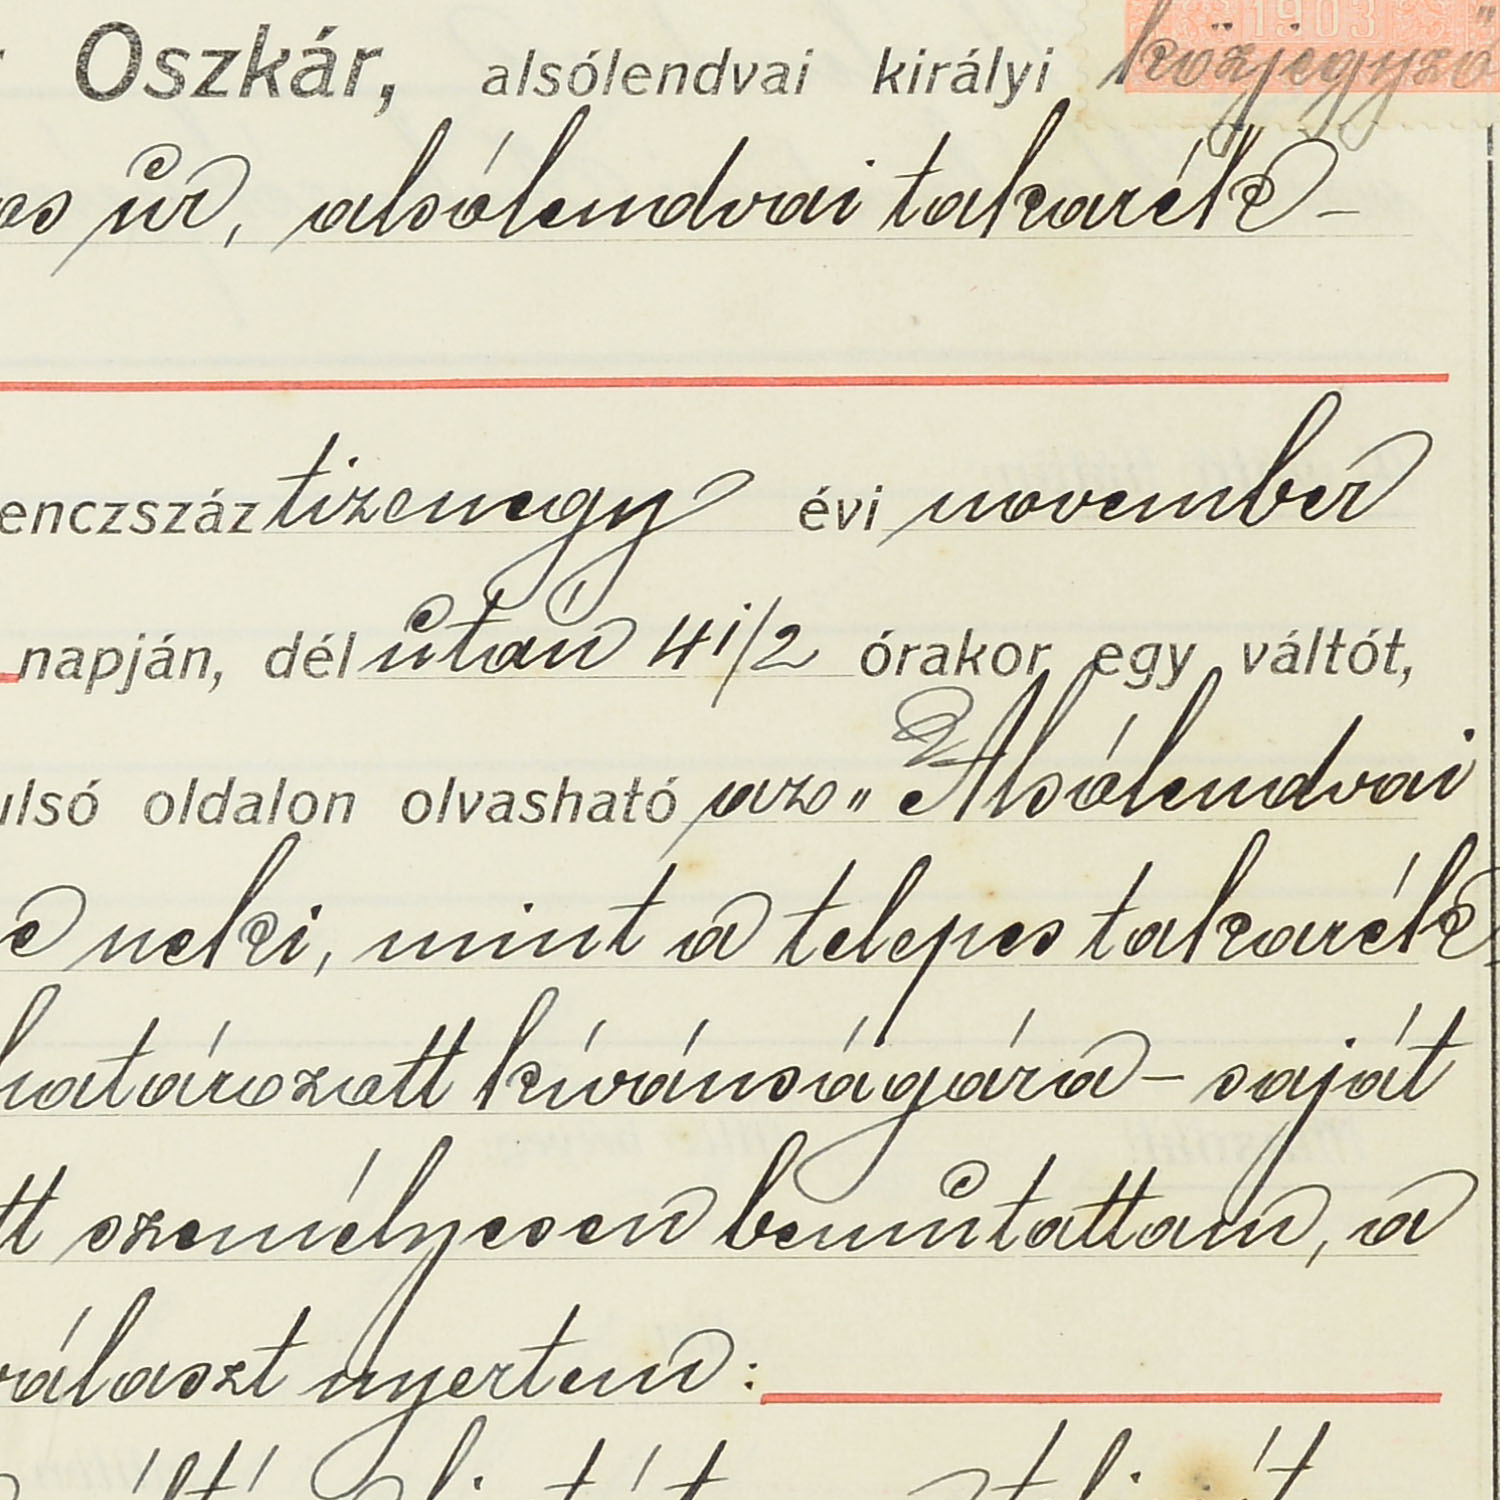 Oszkár, alsólendvai királyi közjegyző
úr, alsólendvai takarék-
enczszáz tizenegy évi november
napján, dél után 4 1/2 órakor egy váltót,
ulsó oldalon olvasható az „Alsólendvai
neki, mint a telepes takarék
határozatt kívánságára - saját
tt személyesen bemutattam, a
választ nyertem: